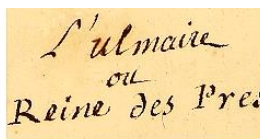 L'ulmaire
ou
Reine des Pres